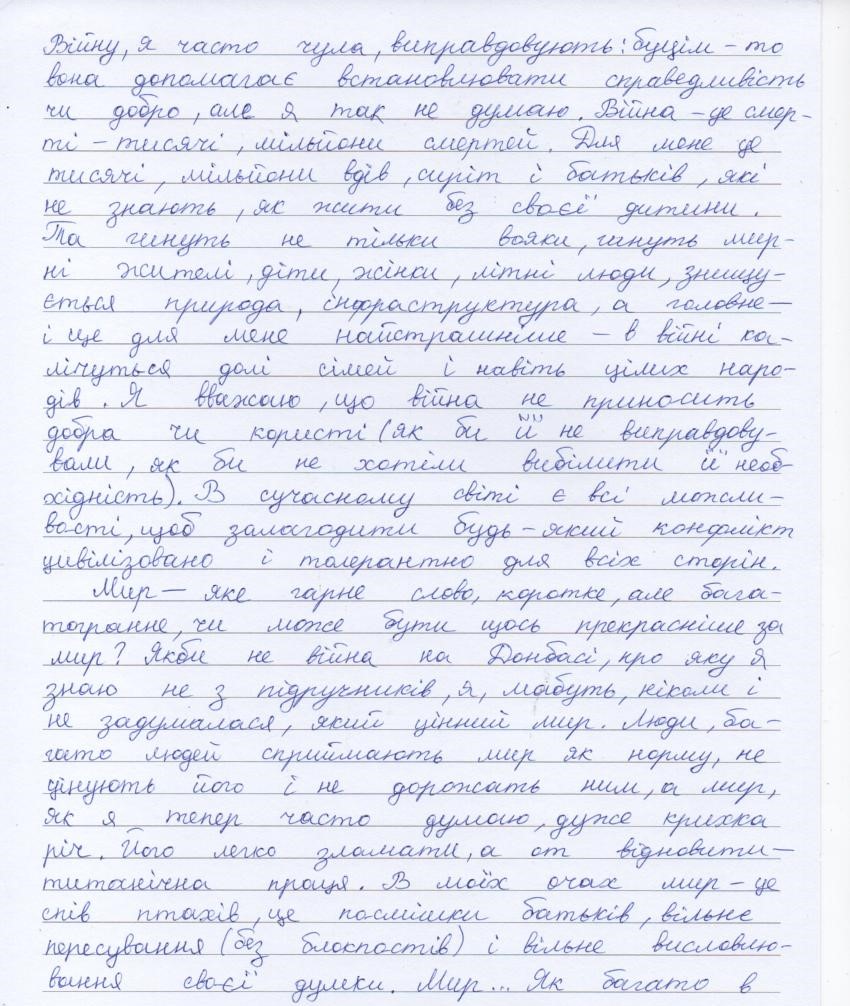 Війну, я часто чула, виправдовують: буцім-то
вона допомагає встановлювати справедливість
чи добро, але я так не думаю. Війна – це смер-
ті – тисячі, мільйони смертей. Для мене це
тисячі, мільйони вдів, сиріт і батьків, які
не знають, як жити без своєї дитини.
Та гинуть не тільки вояки, гинуть мир-
ні жителі, діти, жінки, літні люди, знищу-
ється природа, інфраструктура, а головне –
і це для мене найстрашніше – в війні ка-
лічуться долі сімей і навіть цілих наро-
дів. Я вважаю, що війна не приносить
добра чи користі (як би її не виправдову-
вали, як би не хотіли вибілити її необ-
хідність). В сучасному світі є всі можли-
вості, щоб залагодити будь-який конфлікт
цивілізовано і толерантно для всіх сторін.
Мир – яке гарне слово, коротке, але бага-
тогранне, чи може бути щось прекрасніше за
мир? Якби не війна на Донбасі, про яку я
знаю не з підручників, я, мабуть, ніколи і
не задумалася, який цінний мир. Люди, ба-
гато людей сприймають мир як норму, не
цінують його і не дорожать ним, а мир,
як я тепер часто думаю, дуже крихка
річ. Його легко зламати, а от відновити –
титанічна праця. В моїх очах мир – це
спів птахів, це посмішки батьків, вільне
пересування (без блокпостів) і вільне висловлю-
вання своєї думки. Мир... Як багато в